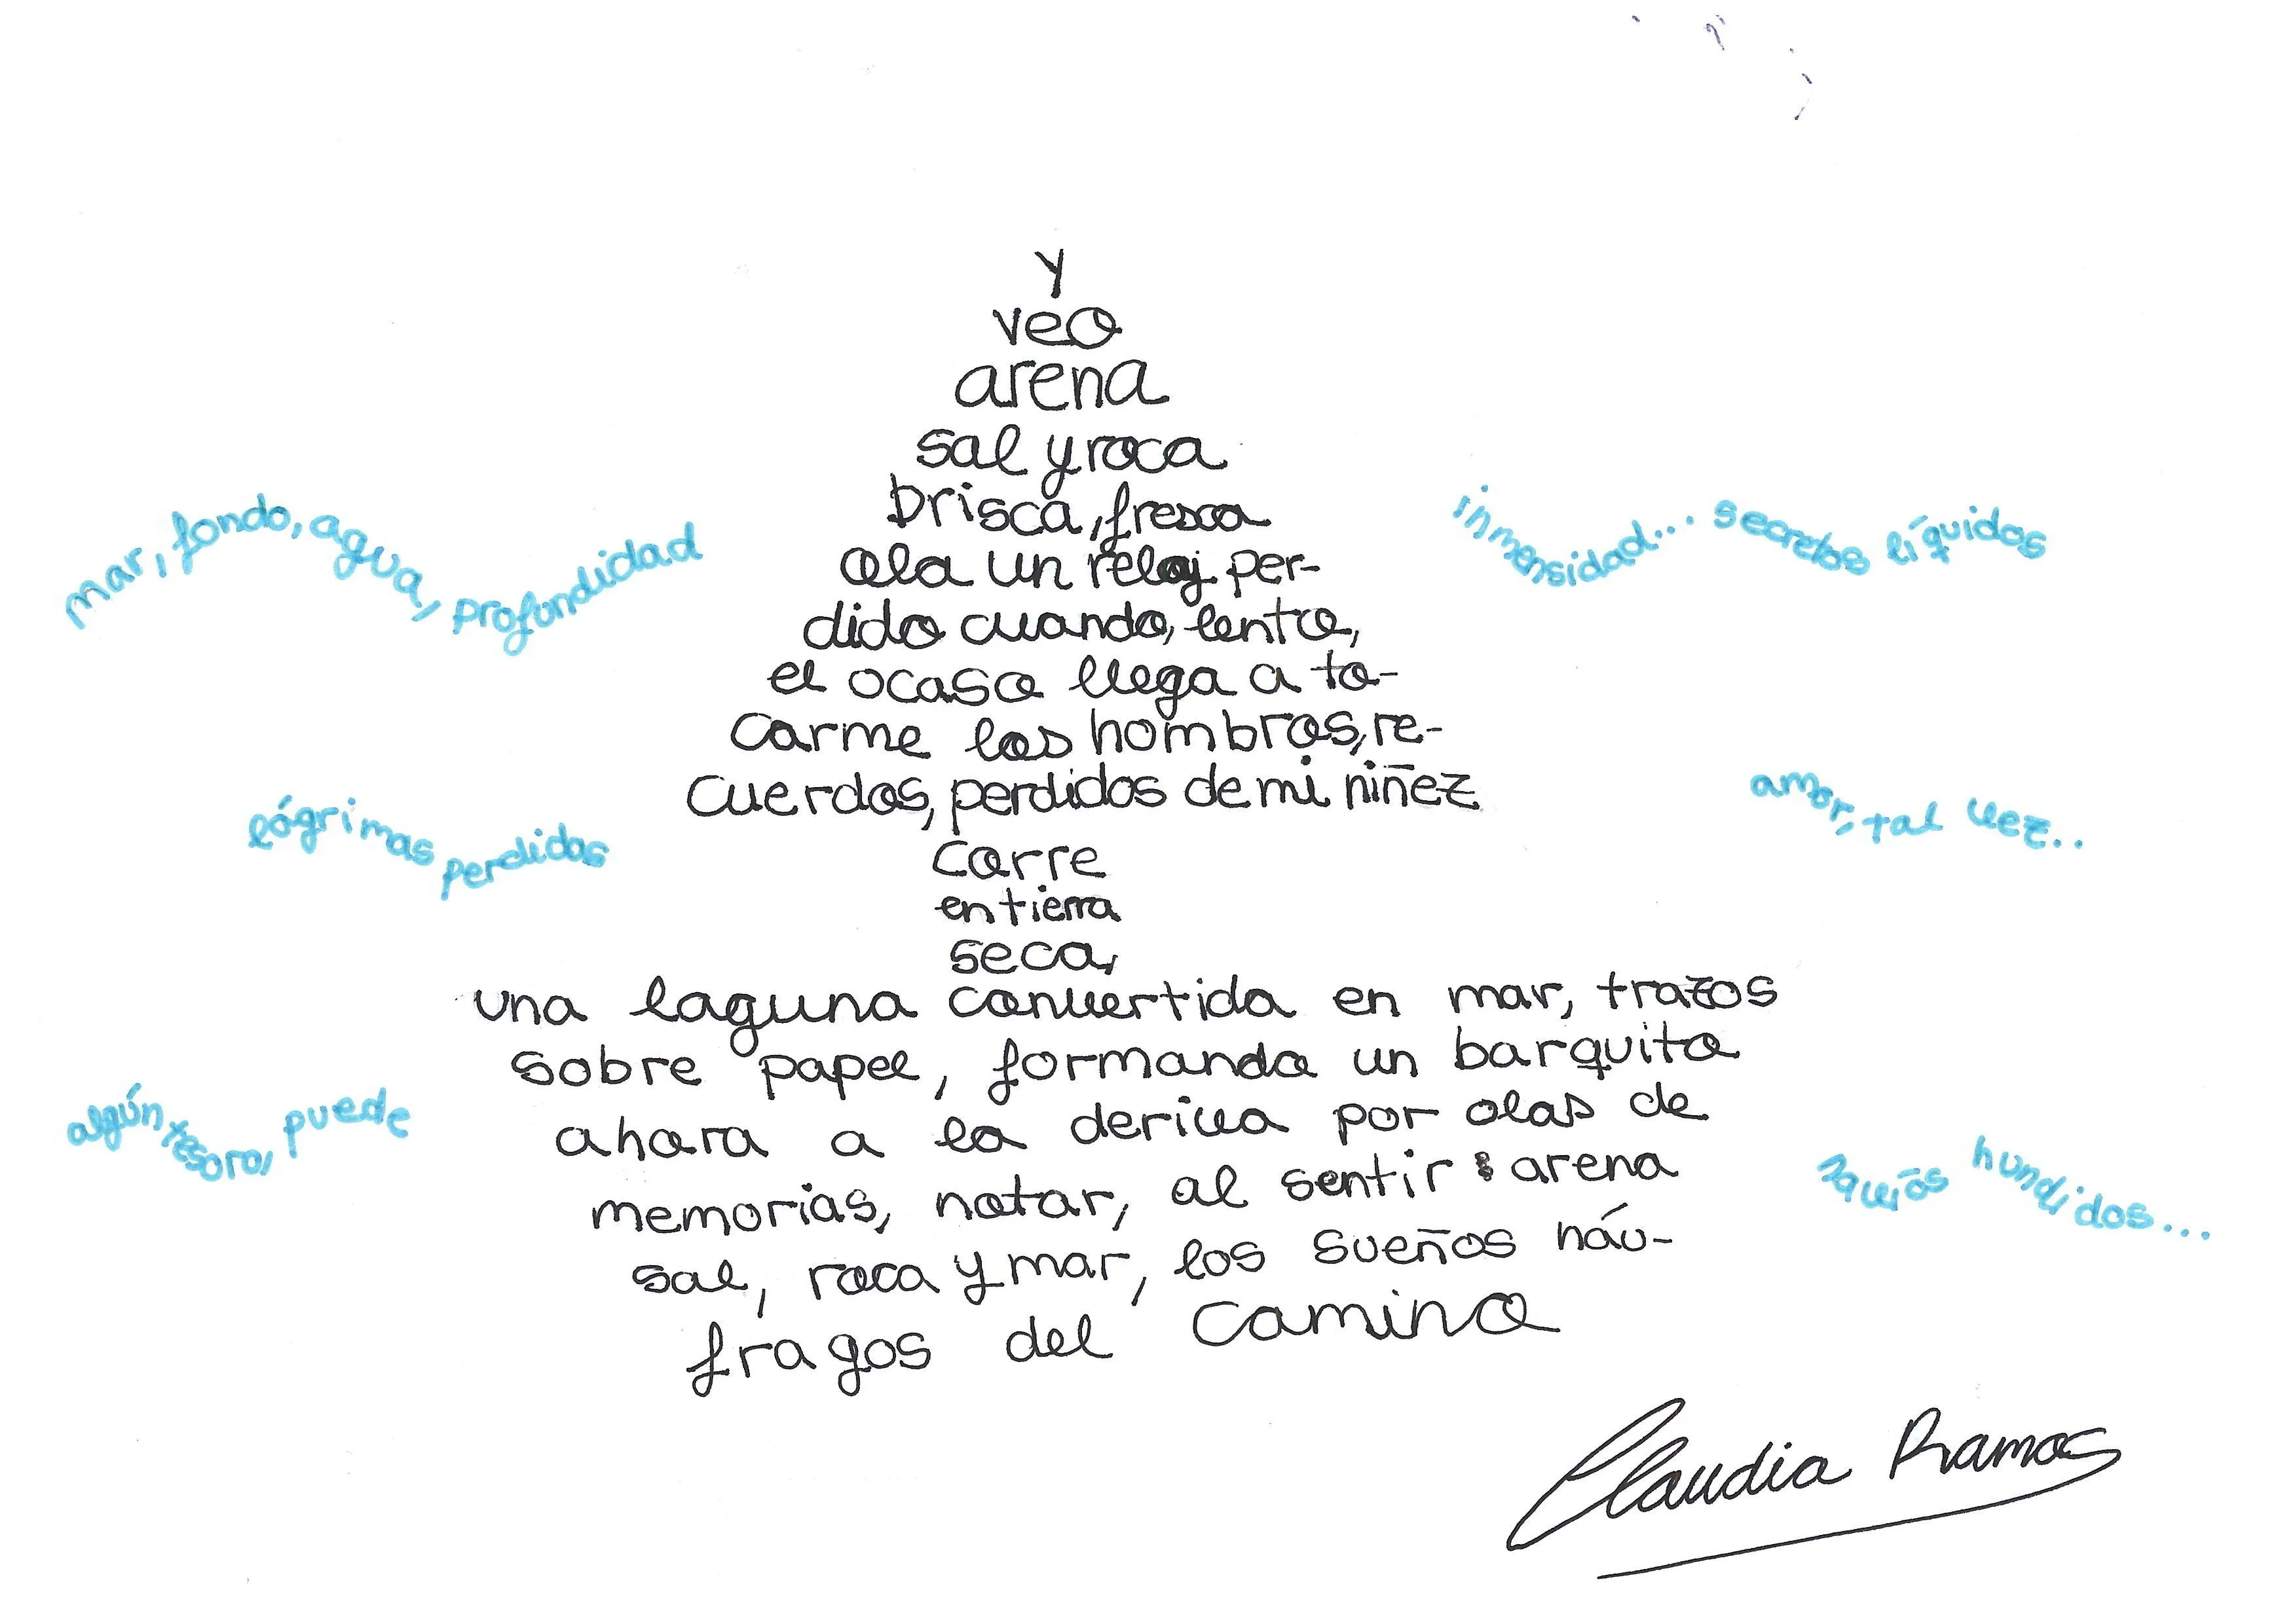 y
veo
arena
sal y roca
brisca, fresca
ola un reloj per-
dido cuando, lento,
el ocaso llega a to-
carme los hombros, re-
cuerdos, perdidos de mi niñez
corre
en tierra
seca,
una laguna convertida en mar, trazos
sobre papel, formando un barquito
ahora a la deriva por olas de
memorias, notar, al sentir arena
sal, roca y mar, los sueños náu-
fragos del camino
mar, fondo, agua, profundidad
inmensidad... secretos líquidos
lágrimas perdidas
amor, tal vez...
algún tesoro, puede
navíos hundidos...
Claudia Ramos